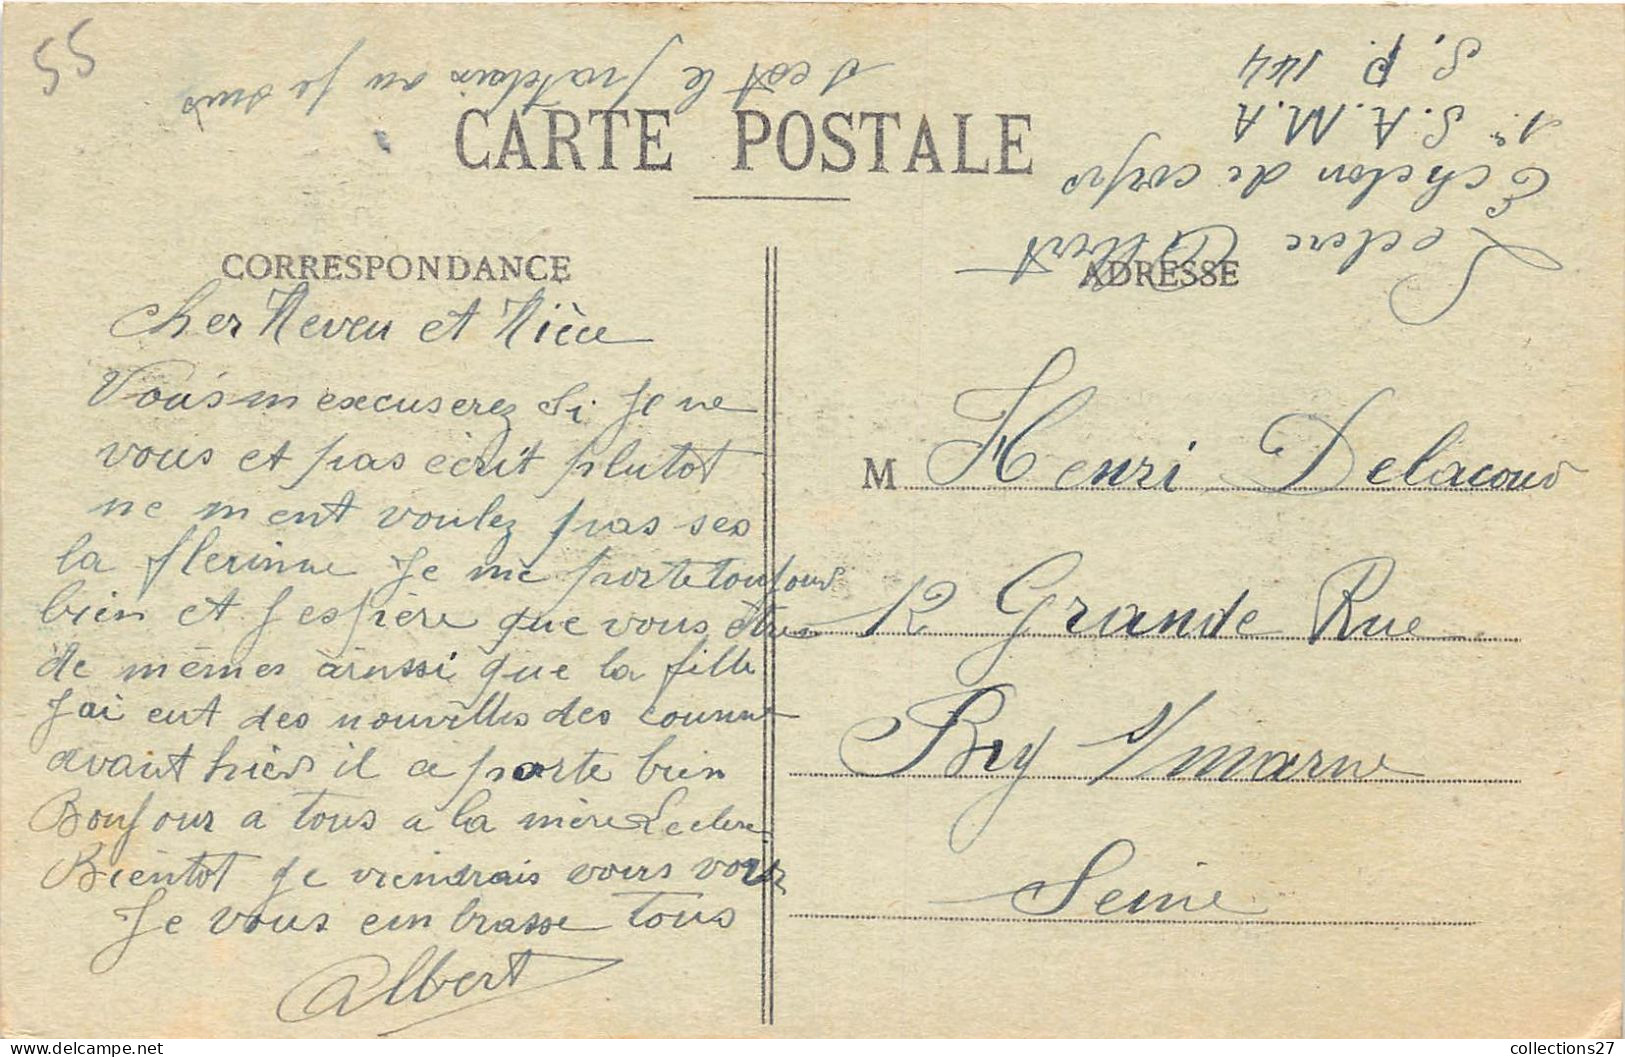 55
s est le patelain ou je suis
Leclerc Albert
Echelon de corps
1er S.A.M.A
S.P. 144
CARTE POSTALE
CORRESPONDANCE
cher Neveu et Nièce
Vous m excuserez si Je ne
vous et pas écrit plutot
ne m ent voulez pas ses
la flemme Je me porte toujours
bien et J espère que vous êtes
de mêmes ainssi que la fille
J ai eut des nouvelles des
avant hier il a porte bien
Bonjour a tous a la mère Leclerc
Bientot je viendrais vous voir
Je vous em brasse tous
Albert
ADRESSE
M Henri Delacour
12 Grande Rue
Bry s/marne
Seine
collections27